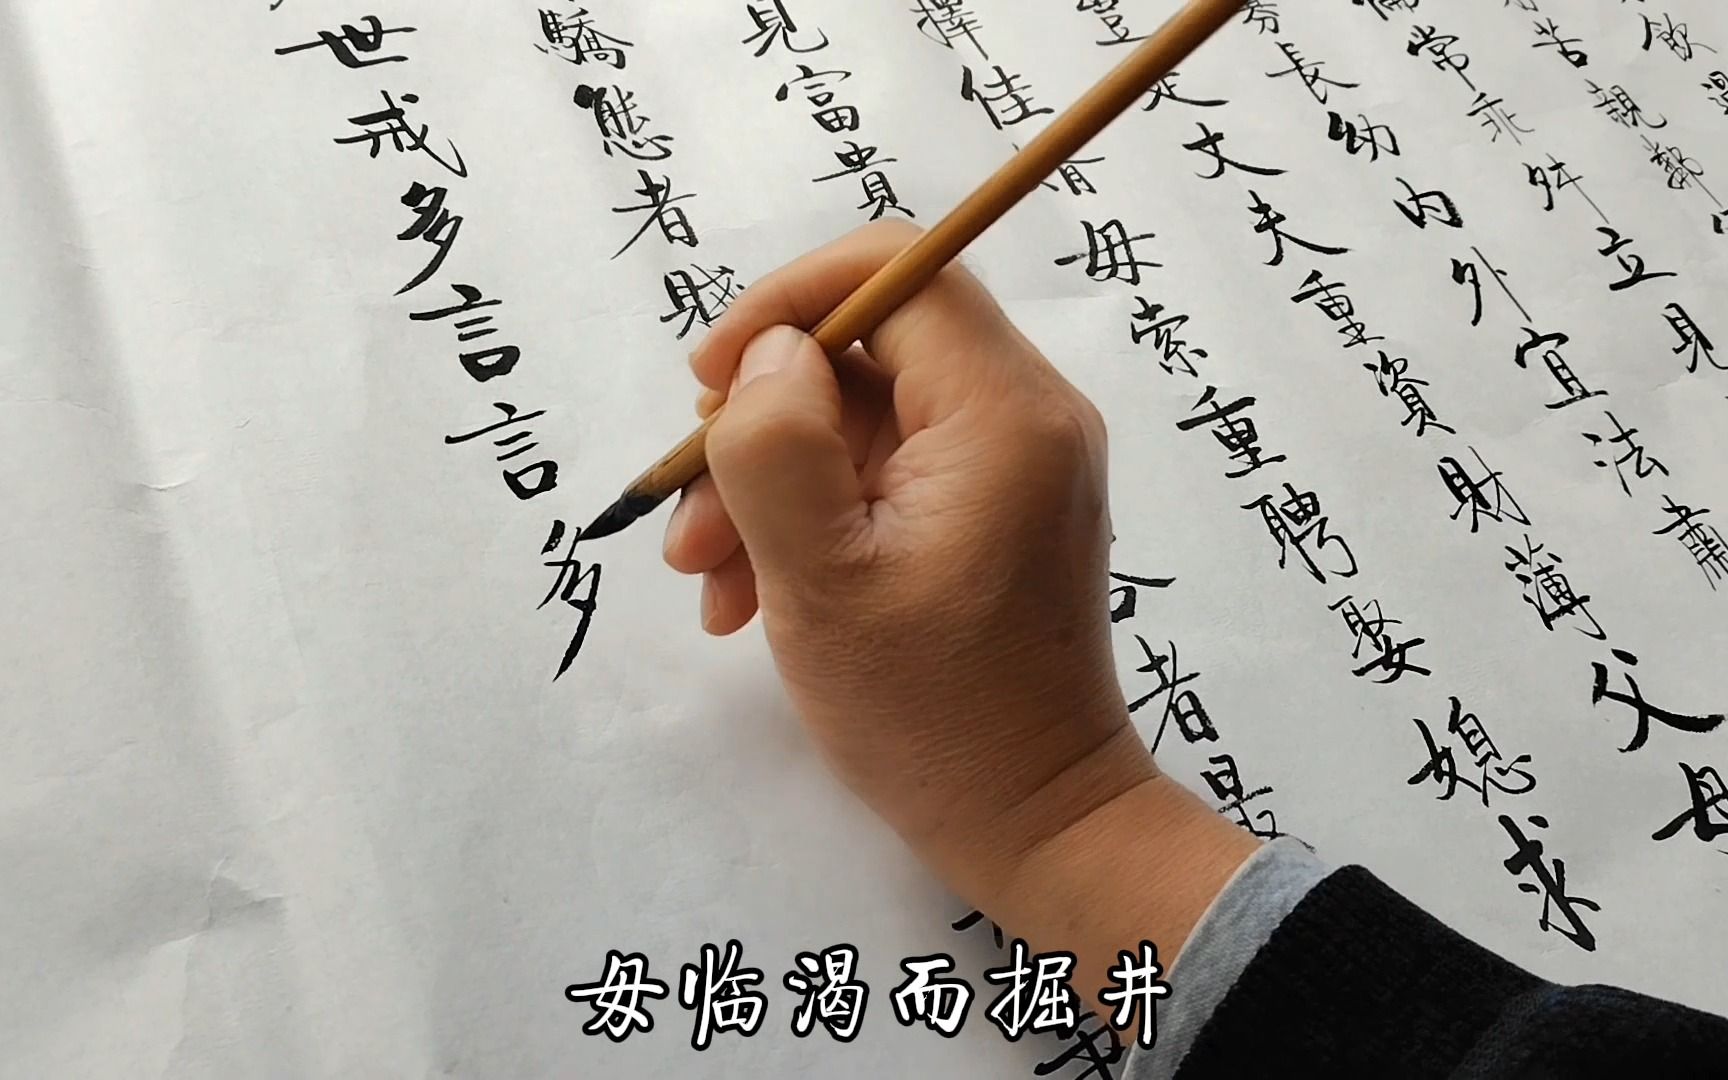 飲
苦親鄰
常乖舛立見
長幼內外宜法肅
豈是丈夫重資財薄父母
擇佳婿毋索重聘娶媳求
見富貴者最
驕態者賤
世戒多言言多
毋临渴而掘井